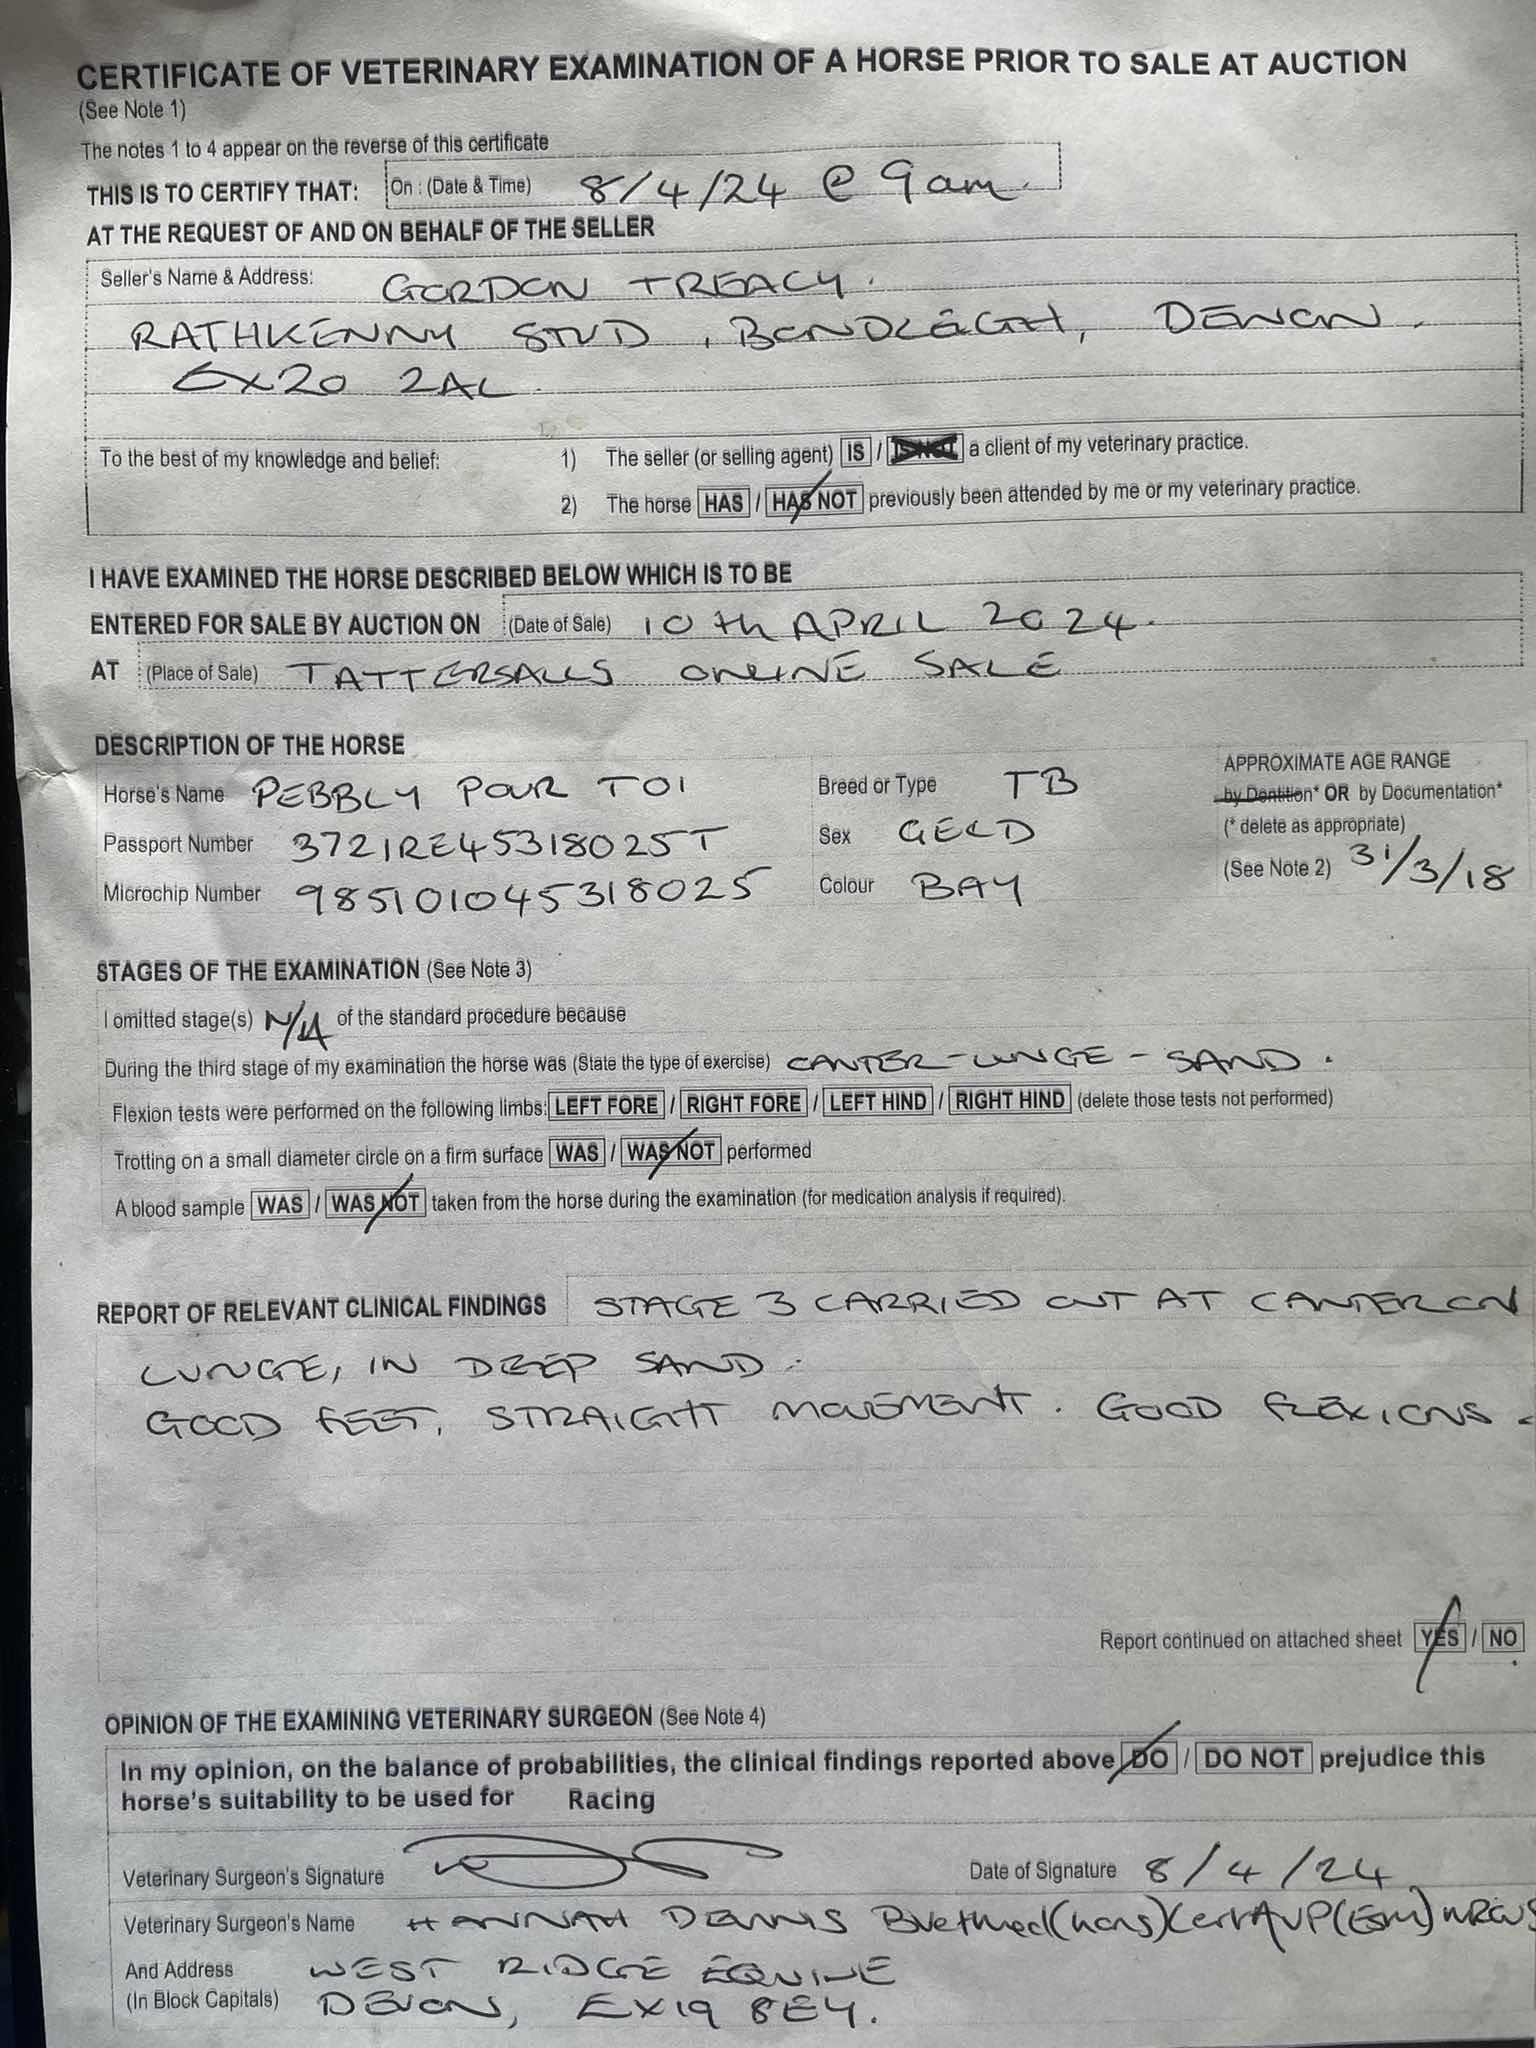 CERTIFICATE OF VETERINARY EXAMINATION OF A HORSE PRIOR TO SALE AT AUCTION
(See Note 1)
The notes 1 to 4 appear on the reverse of this certificate
THIS IS TO CERTIFY THAT: On : (Date & Time) 8/4/24 @ 9am.
AT THE REQUEST OF AND ON BEHALF OF THE SELLER
Seller's Name & Address: GORDON TREACY.
RATHKENNY STUD, BONDLEIGH, DEVON.
EX20 2AL.
To the best of my knowledge and belief: 1) The seller (or selling agent) IS / IS NOT a client of my veterinary practice.
2) The horse HAS / HAS NOT previously been attended by me or my veterinary practice.
I HAVE EXAMINED THE HORSE DESCRIBED BELOW WHICH IS TO BE
ENTERED FOR SALE BY AUCTION ON (Date of Sale) 10th APRIL 2024.
AT (Place of Sale) TATTERSALLS ONLINE SALE
DESCRIPTION OF THE HORSE
Horse's Name PEBBLY POUR TOI Breed or Type TB APPROXIMATE AGE RANGE
by Dentition* OR by Documentation*
Passport Number 372IRE45318025T Sex GELD (* delete as appropriate)
Microchip Number 985101045318025 Colour BAY (See Note 2) 31/3/18
STAGES OF THE EXAMINATION (See Note 3)
I omitted stage(s) N/A of the standard procedure because
During the third stage of my examination the horse was (State the type of exercise) CANTER - LUNGE - SAND.
Flexion tests were performed on the following limbs: LEFT FORE / RIGHT FORE / LEFT HIND / RIGHT HIND (delete those tests not performed)
Trotting on a small diameter circle on a firm surface WAS / WAS NOT performed
A blood sample WAS / WAS NOT taken from the horse during the examination (for medication analysis if required).
REPORT OF RELEVANT CLINICAL FINDINGS STAGE 3 CARRIED OUT AT CANTER ON
LUNGE, IN DEEP SAND.
GOOD FEET, STRAIGHT MOVEMENT. GOOD FLEXIONS.
Report continued on attached sheet YES / NO
OPINION OF THE EXAMINING VETERINARY SURGEON (See Note 4)
In my opinion, on the balance of probabilities, the clinical findings reported above DO / DO NOT prejudice this
horse's suitability to be used for Racing
Veterinary Surgeon's Signature Date of Signature 8/4/24
Veterinary Surgeon's Name HANNAH DENNIS BVetMed(hons)CertAVP(Esm)MRCVS
And Address WEST RIDGE EQUINE
(In Block Capitals) DEVON, EX19 8EY.